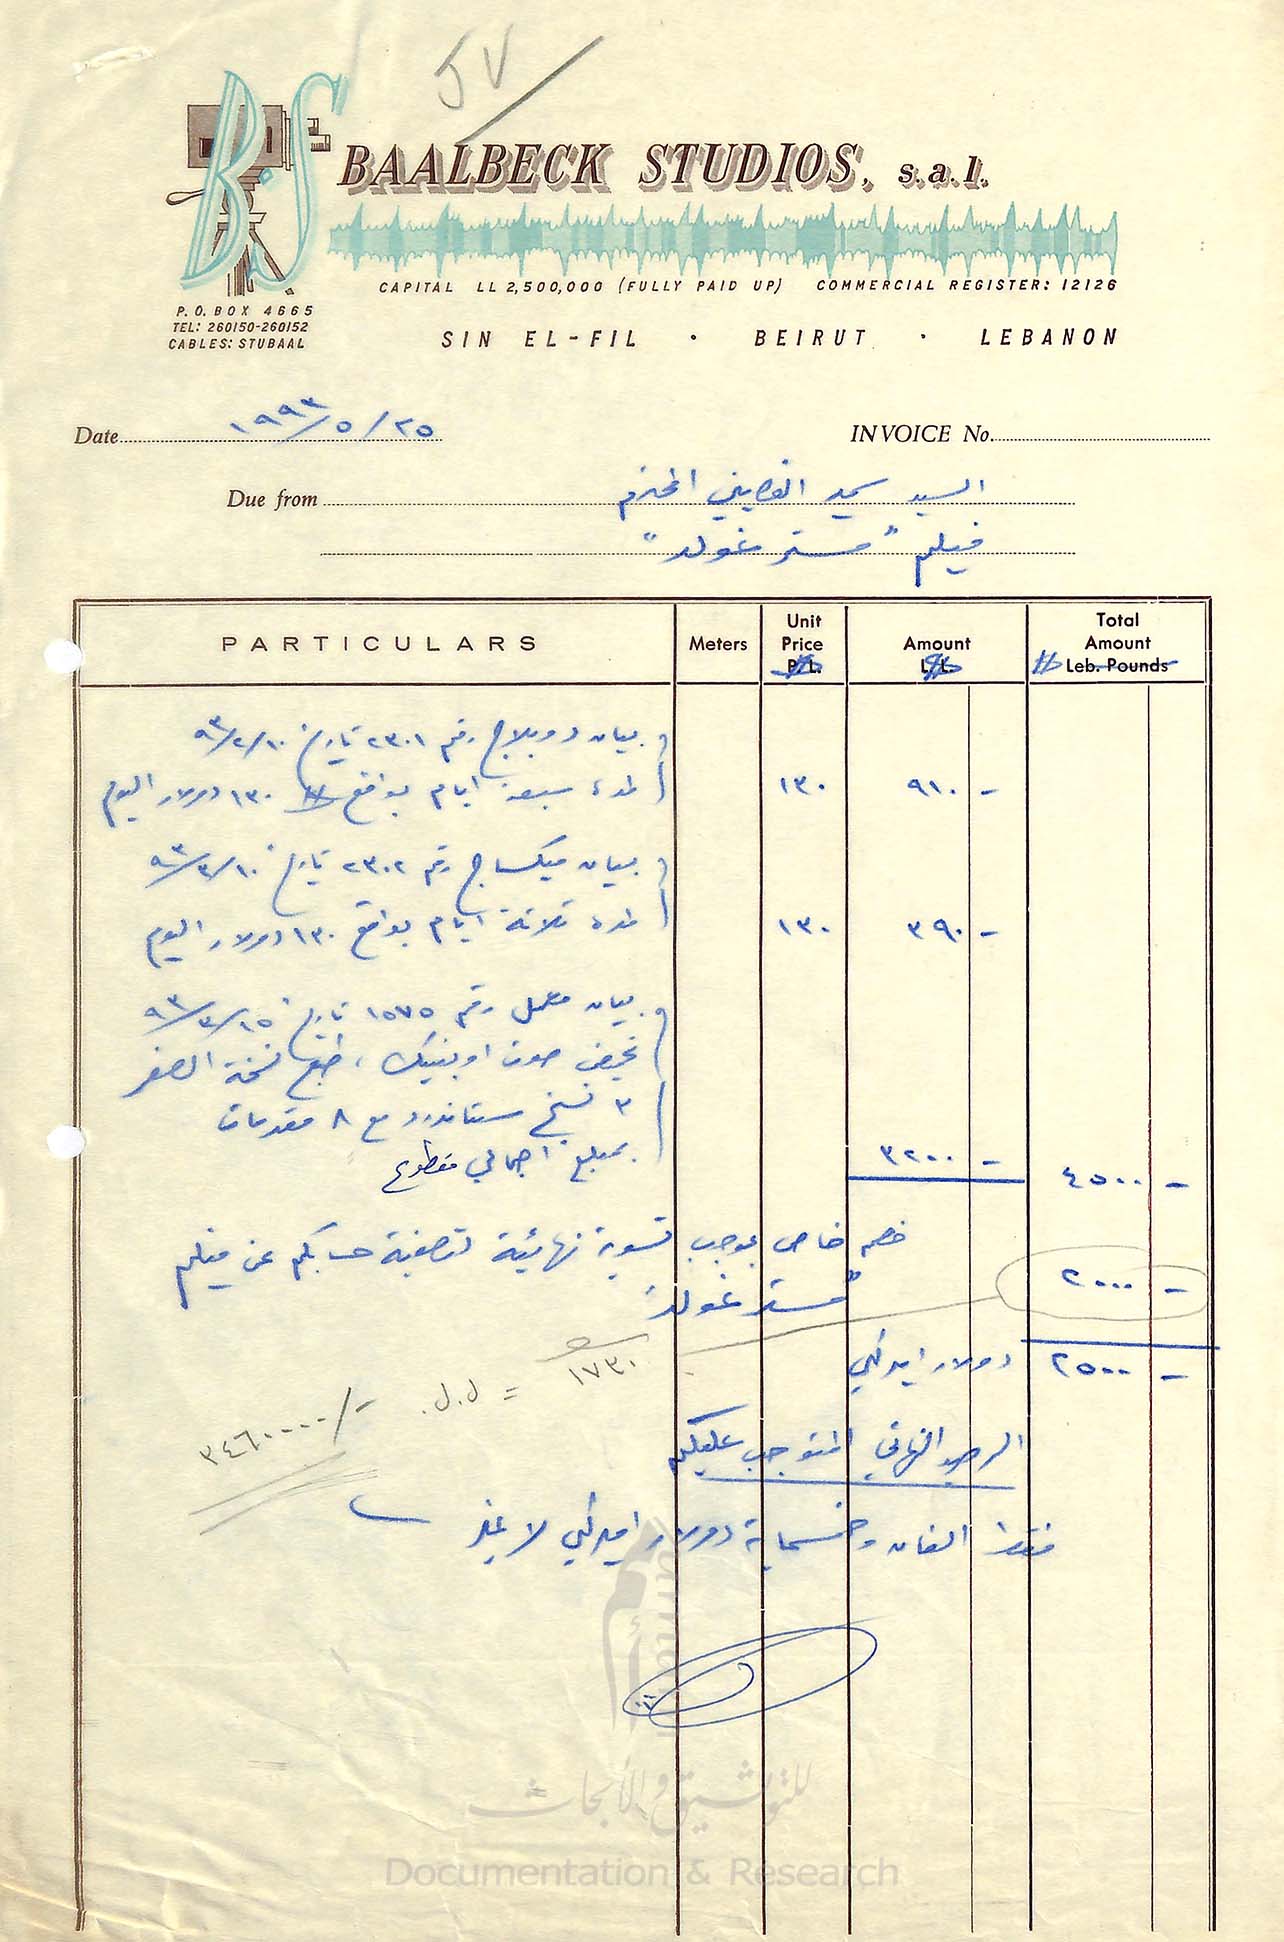 JV
B.S
BAALBECK STUDIOS, s.a.l.
CAPITAL LL 2,500,000 (FULLY PAID UP) COMMERCIAL REGISTER: 12126
P.O. BOX 4665
TEL: 260150-260152
CABLES: STUBAAL
SIN EL-FIL · BEIRUT · LEBANON
Date ٢٥/٥/١٩٩٣
INVOICE No.
Due from السيد سمير الغصيني المحترم
فيلم "مستر غولد"
PARTICULARS Meters Unit Price P.L. Amount L.L. Total Amount Leb. Pounds
بيان دوبلاج رقم ٢٣٠١ تاريخ ٩٣/٢/١٠
لمدة سبعة ايام بواقع ١٣٠ دولار اليوم ١٣٠ ٩١٠ -
بيان ميكساج رقم ٢٣٠٢ تاريخ ٩٣/٣/١٠
لمدة ثلاثة ايام بواقع ١٣٠ دولار اليوم ١٣٠ ٣٩٠ -
بيان معمل رقم ١٥٧٥ تاريخ ٩٣/٣/١٥
تحميض صوت اوبتيك، طبع نسخة الصفر
٣ نسخ ستاندرد مع ٨ مقدمات
بمبلغ اجمالي مقطوع ٣٢٠٠ - ٤٥٠٠ -
خصم خاص بموجب تسوية نهائية لتصفية حسابكم عن فيلم
"مستر غولد" ٢٠٠٠ -
دولار اميركي ٢٥٠٠ -
١٧٣٠
٣٤٦٠٠٠٠/- ل.ل. =
الرصيد النهائي المتوجب عليكم
فقط الفان وخمسماية دولار اميركي لا غير
أمم
umam
للتوثيق والأبحاث
Documentation & Research